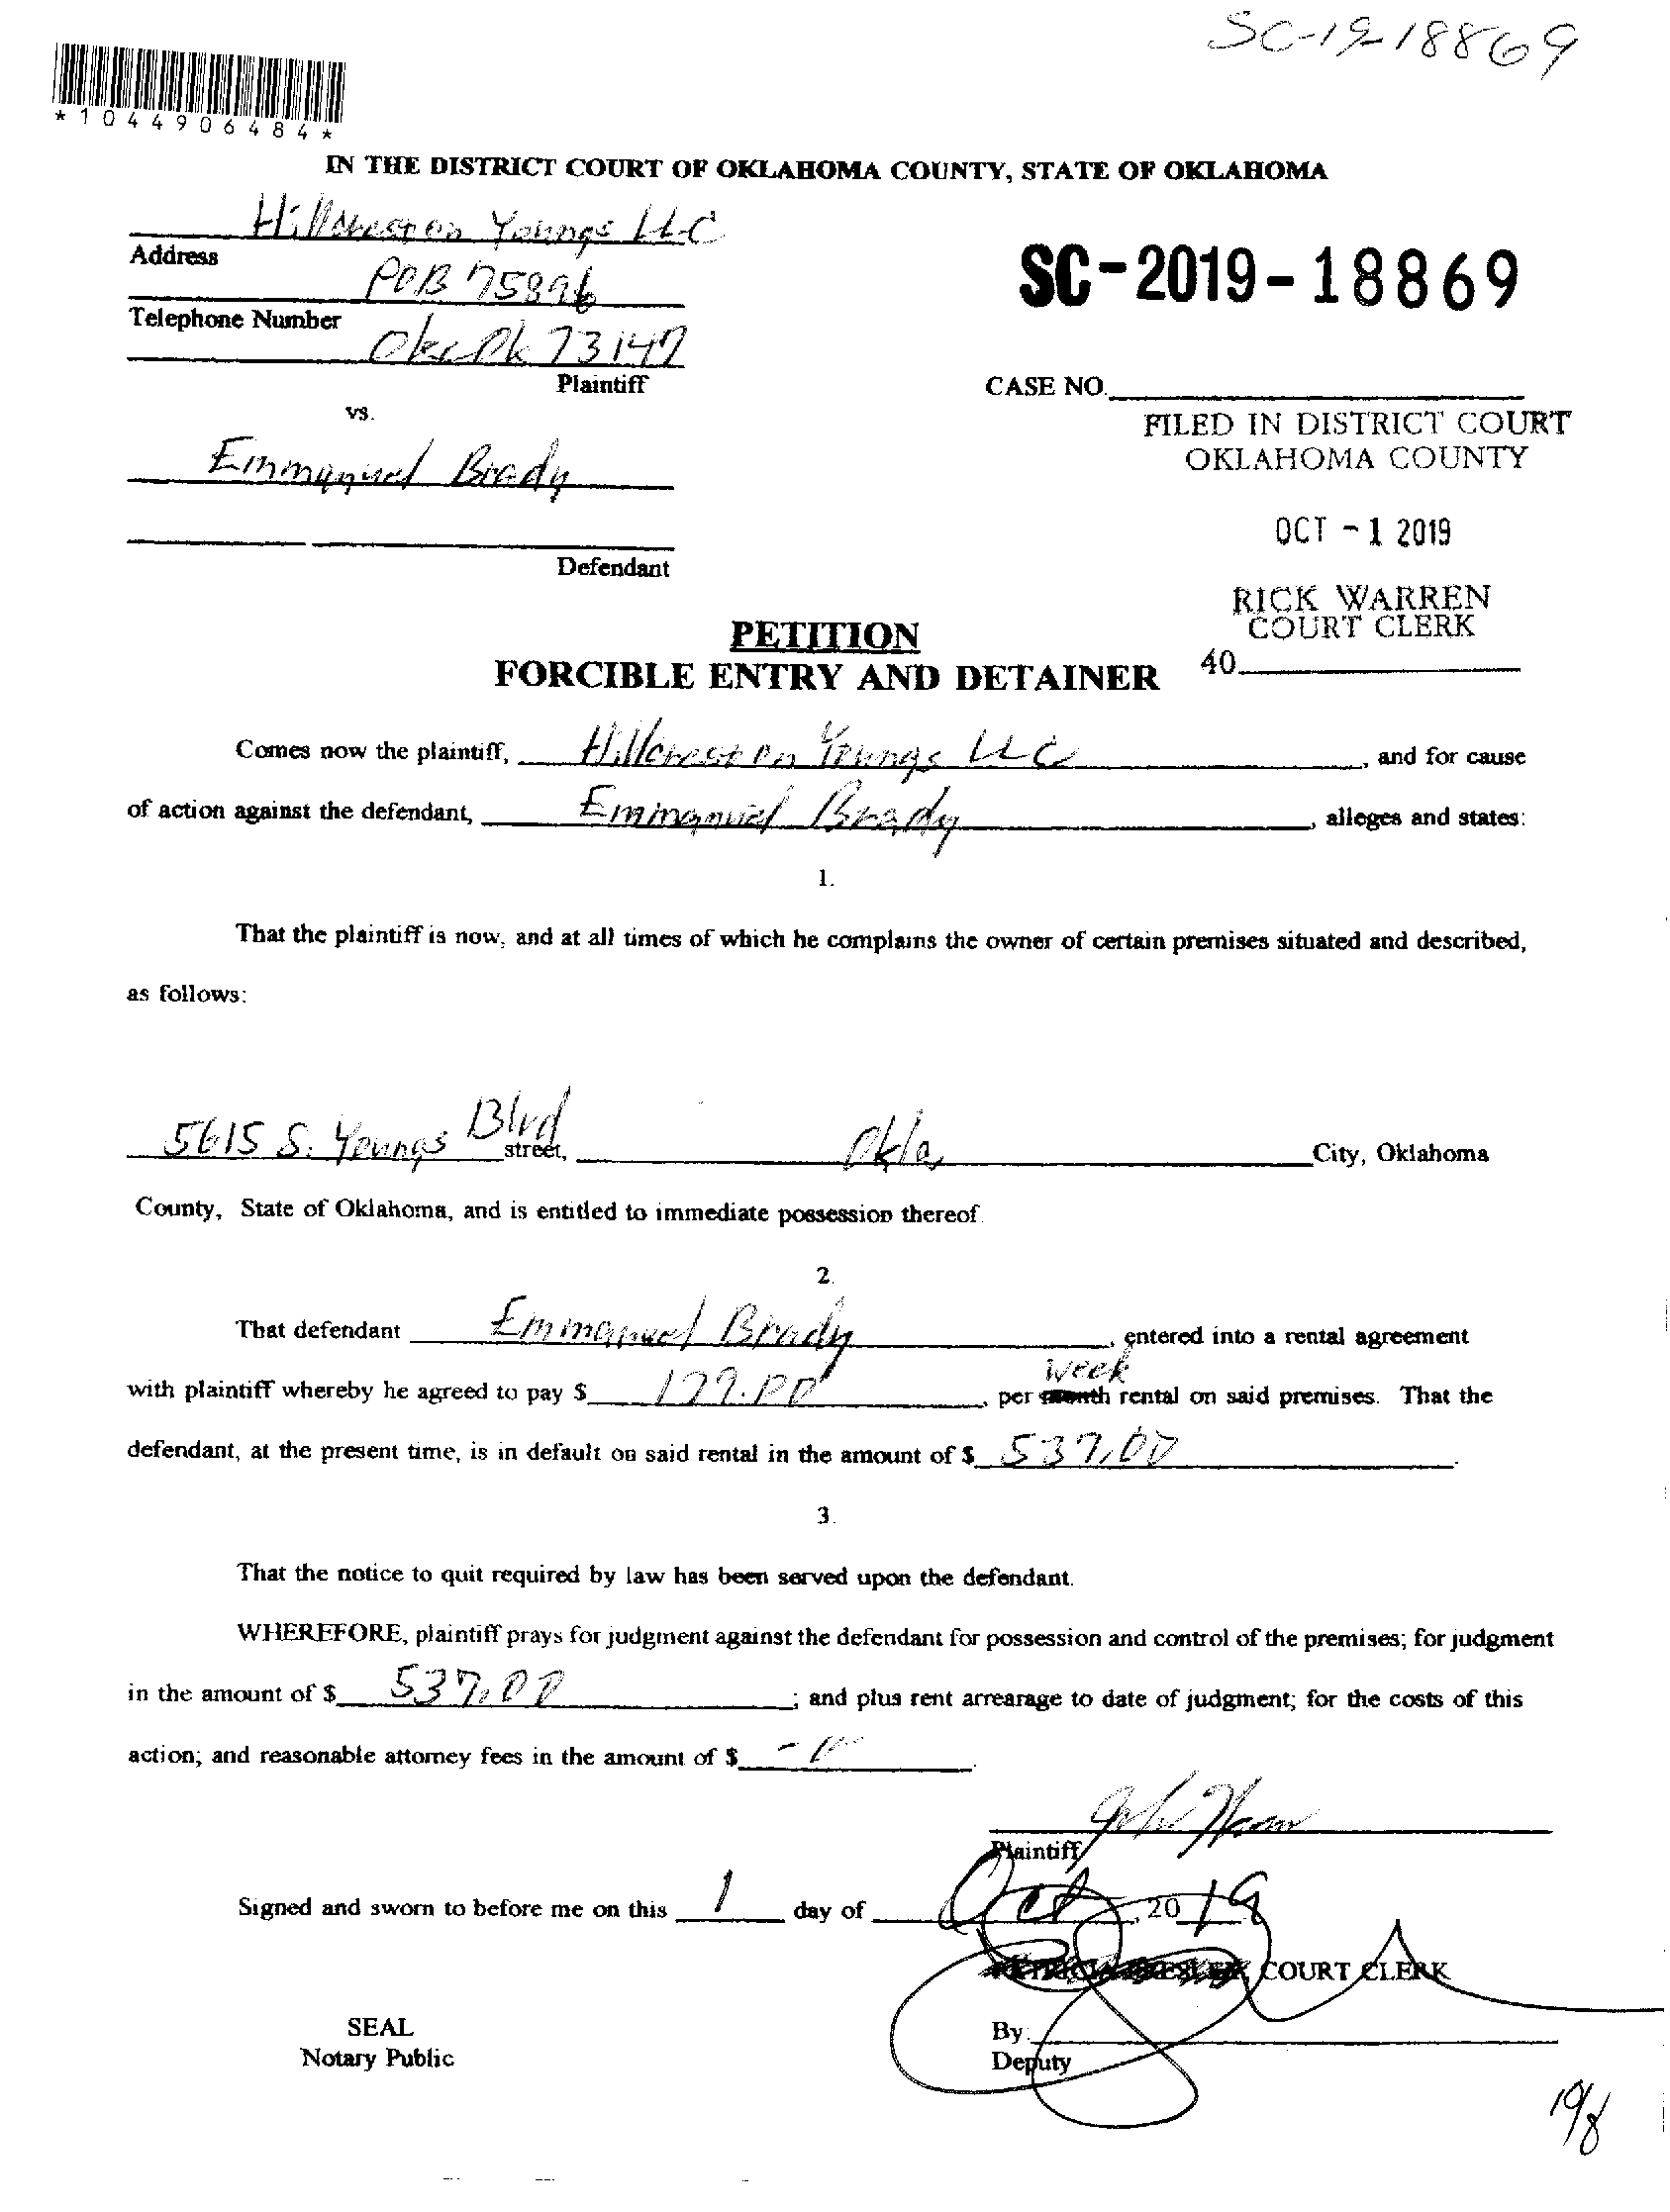 SC-19-18869
*1044906484*
IN THE DISTRICT COURT OF OKLAHOMA COUNTY, STATE OF OKLAHOMA
Hillcrest on Youngs LLC
Address
POB 75896
SC-2019-18869
Telephone Number
Okc Ok 73147
Plaintiff
CASE NO.
vs.
FILED IN DISTRICT COURT
OKLAHOMA COUNTY
Emmanuel Brady
OCT -1 2019
Defendant
RICK WARREN
COURT CLERK
PETITION
40
FORCIBLE ENTRY AND DETAINER
Comes now the plaintiff, Hillcrest on Youngs LLC, and for cause
of action against the defendant, Emmanuel Brady, alleges and states:
1.
That the plaintiff is now, and at all times of which he complains the owner of certain premises situated and described,
as follows:
5615 S. Youngs Blvd street, Okla City, Oklahoma
County, State of Oklahoma, and is entitled to immediate possession thereof.
2.
That defendant Emmanuel Brady, entered into a rental agreement
week
with plaintiff whereby he agreed to pay $ 179.00, per month rental on said premises. That the
defendant, at the present time, is in default on said rental in the amount of $ 537.00.
3.
That the notice to quit required by law has been served upon the defendant.
WHEREFORE, plaintiff prays for judgment against the defendant for possession and control of the premises; for judgment
in the amount of $ 537.00; and plus rent arrearage to date of judgment; for the costs of this
action; and reasonable attorney fees in the amount of $
Plaintiff
Signed and sworn to before me on this 1 day of Oct, 20 19
COURT CLERK
SEAL
By:
Notary Public
Deputy
10/8